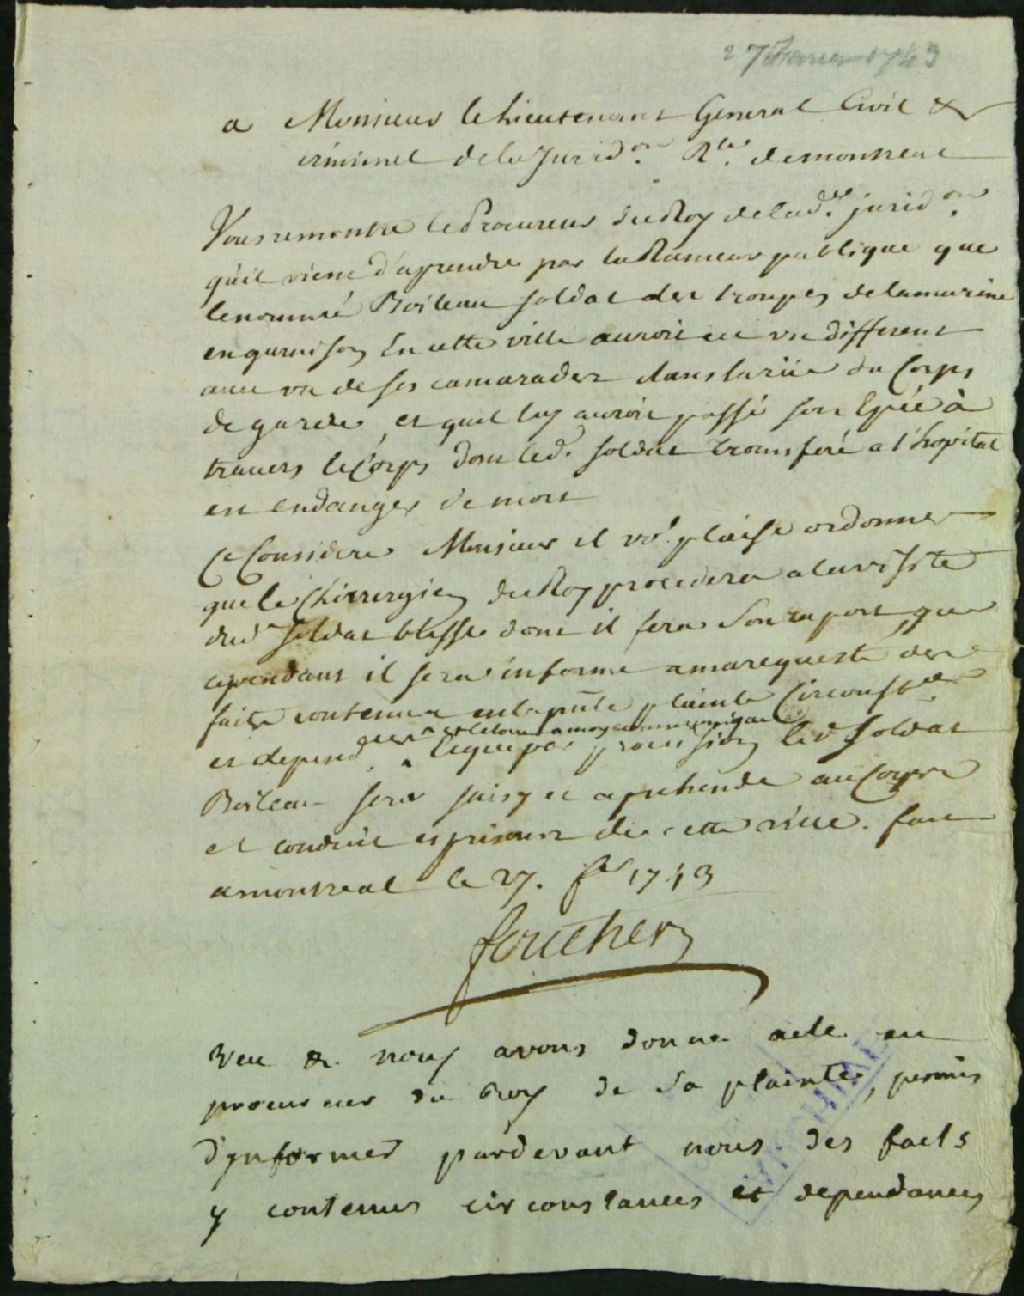 27 fevrier 1743
a Monsieur le Lieutenant General Civil &
criminel de la Jurid.on R.le de montreal
Vous remontre le Procureur du Roy de lad.e jurid.on
quil vient d'aprendre par la Rumeur publique que
le nommé Boileau soldat des troupes de la marine
en garnison En cette ville auroit eu un different
avec un de ses camarades dans la rüe du Corps
de garde, et quil luy auroit passé son Epée à
travers le Corps dont led.t soldat transferé a l'hopital
est en danger de mort
Ce Consideré Monsieur il vo.s plaise ordonner
que le Chirurgien du Roy procedera a la visite
dud.t soldat blessé dont il fera son raport, que
cependant il sera informé a ma requeste des
faits contenus en la p.nte plainte Circonst.ces
et depend.ces par provision led.t soldat
Boileau sera saisy et aprehendé au Corps
et conduit es prisons de cette ville. fait
a montreal le 27. f.er 1743
foucher
Veu &. nous avons donné acte au
procureur du Roy de Sa plainte, permis
d'ynformer pardevant nous des faits
y contenus circonstances et dependances
ARCHIVES